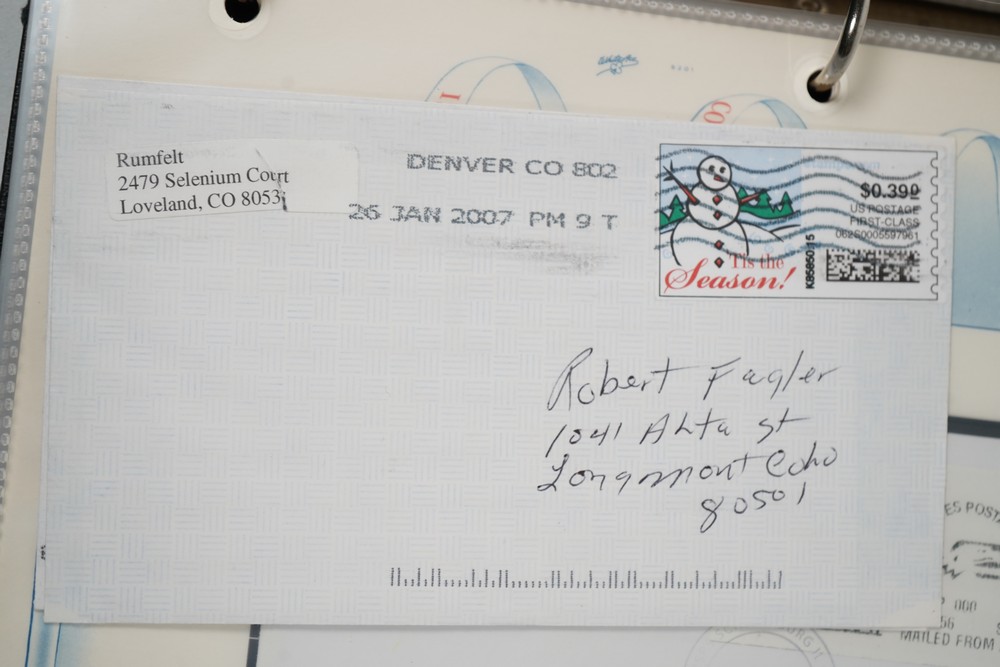 Rumfelt
2479 Selenium Court
Loveland, CO 8053
DENVER CO 802
26 JAN 2007 PM 9 T
$0.390
US POSTAGE
FIRST-CLASS
062S0005597961
K8585015
'Tis the
Season!
Robert Fagler
1041 Alta St
Longmont Colo
80501
MAILED FROM